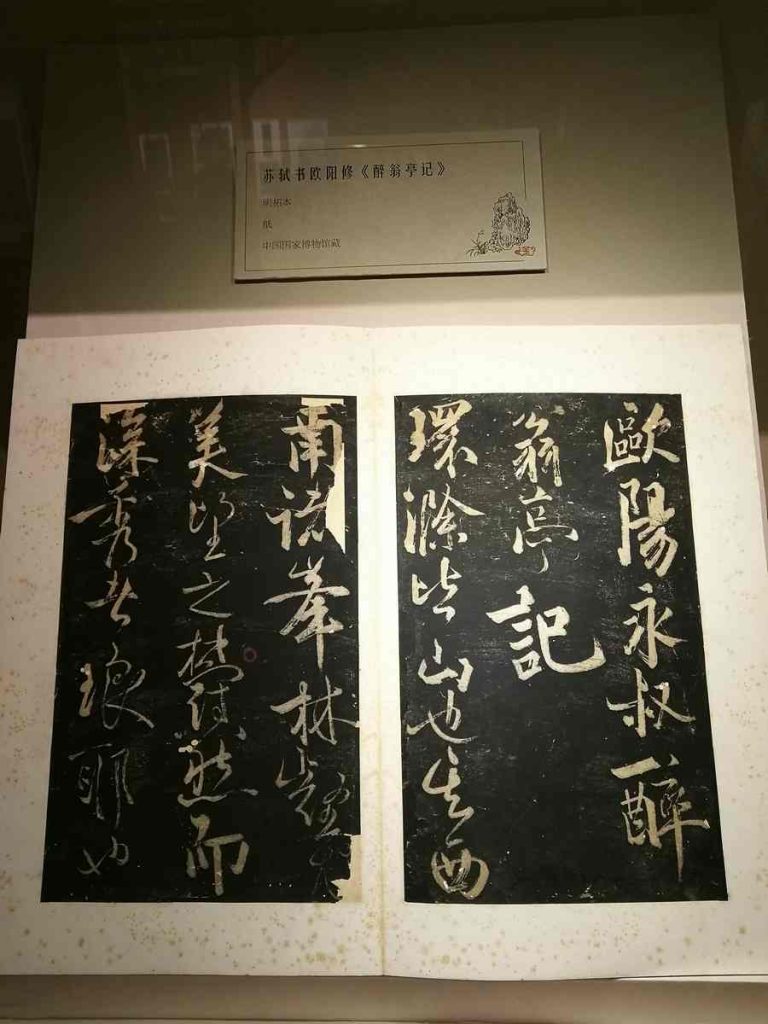 苏轼书欧阳修《醉翁亭记》
明拓本
纸
中国国家博物馆藏
歐陽永叔醉
翁亭記
環滁皆山也其西
南諸峯林壑尤
美望之然而
深秀者琅耶也